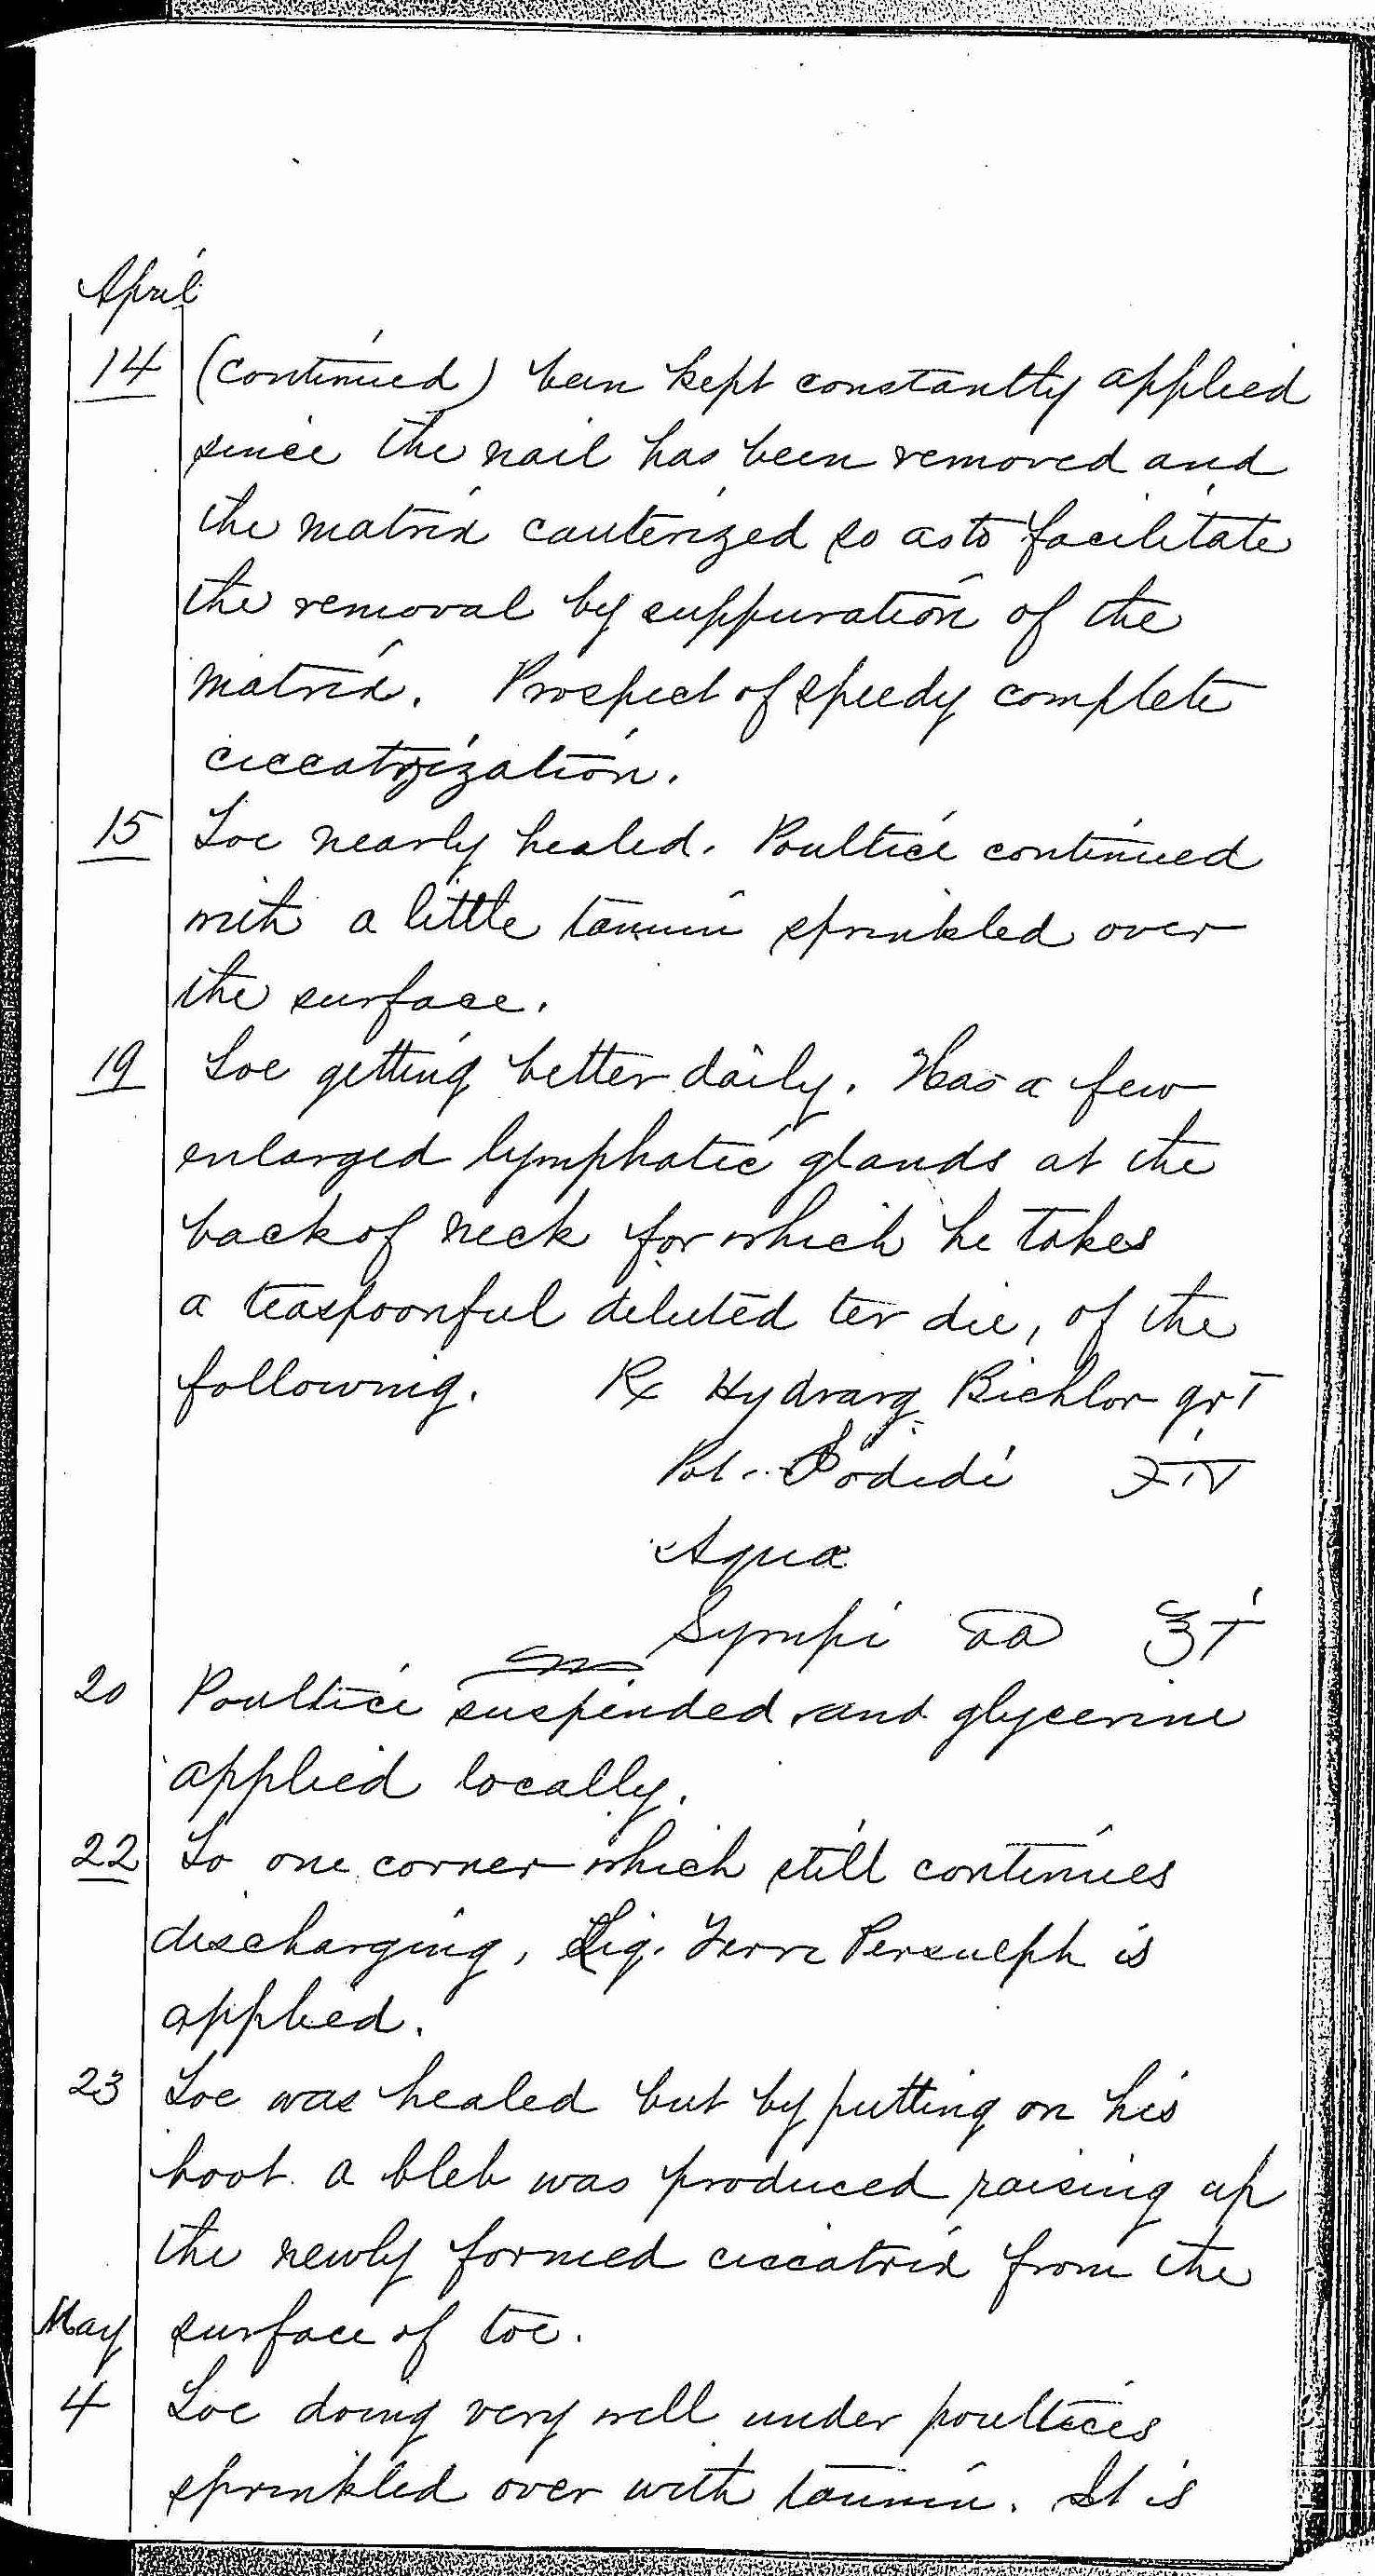 April
14 (continued) been kept constantly applied
since the nail has been removed and
the matrix cauterized so as to facilitate
the removal by suppuration of the
matrix. Prospect of speedy complete
ciccatrization.
15 Toe nearly healed. Poultice continued
with a little tannin sprinkled over
the surface.
19 Toe getting better daily. Has a few
enlarged lymphatic glands at the
back of neck for which he takes
a teaspoonful diluted ter die, of the
following. Rx Hydrarg Bichlor gr i
Pot. Iodidi ʒiv
Aqua
Syrupi aa ℥i
20 Poultice suspended and glycerine
applied locally.
22 To one corner which still continues
discharging, Liq. Ferri Persulph is
applied.
23 Toe was healed but by putting on his
boot a bleb was produced raising up
the newly formed ciccatrix from the
May surface of toe.
4 Toe doing very well under poultices
sprinkled over with tannin. It is